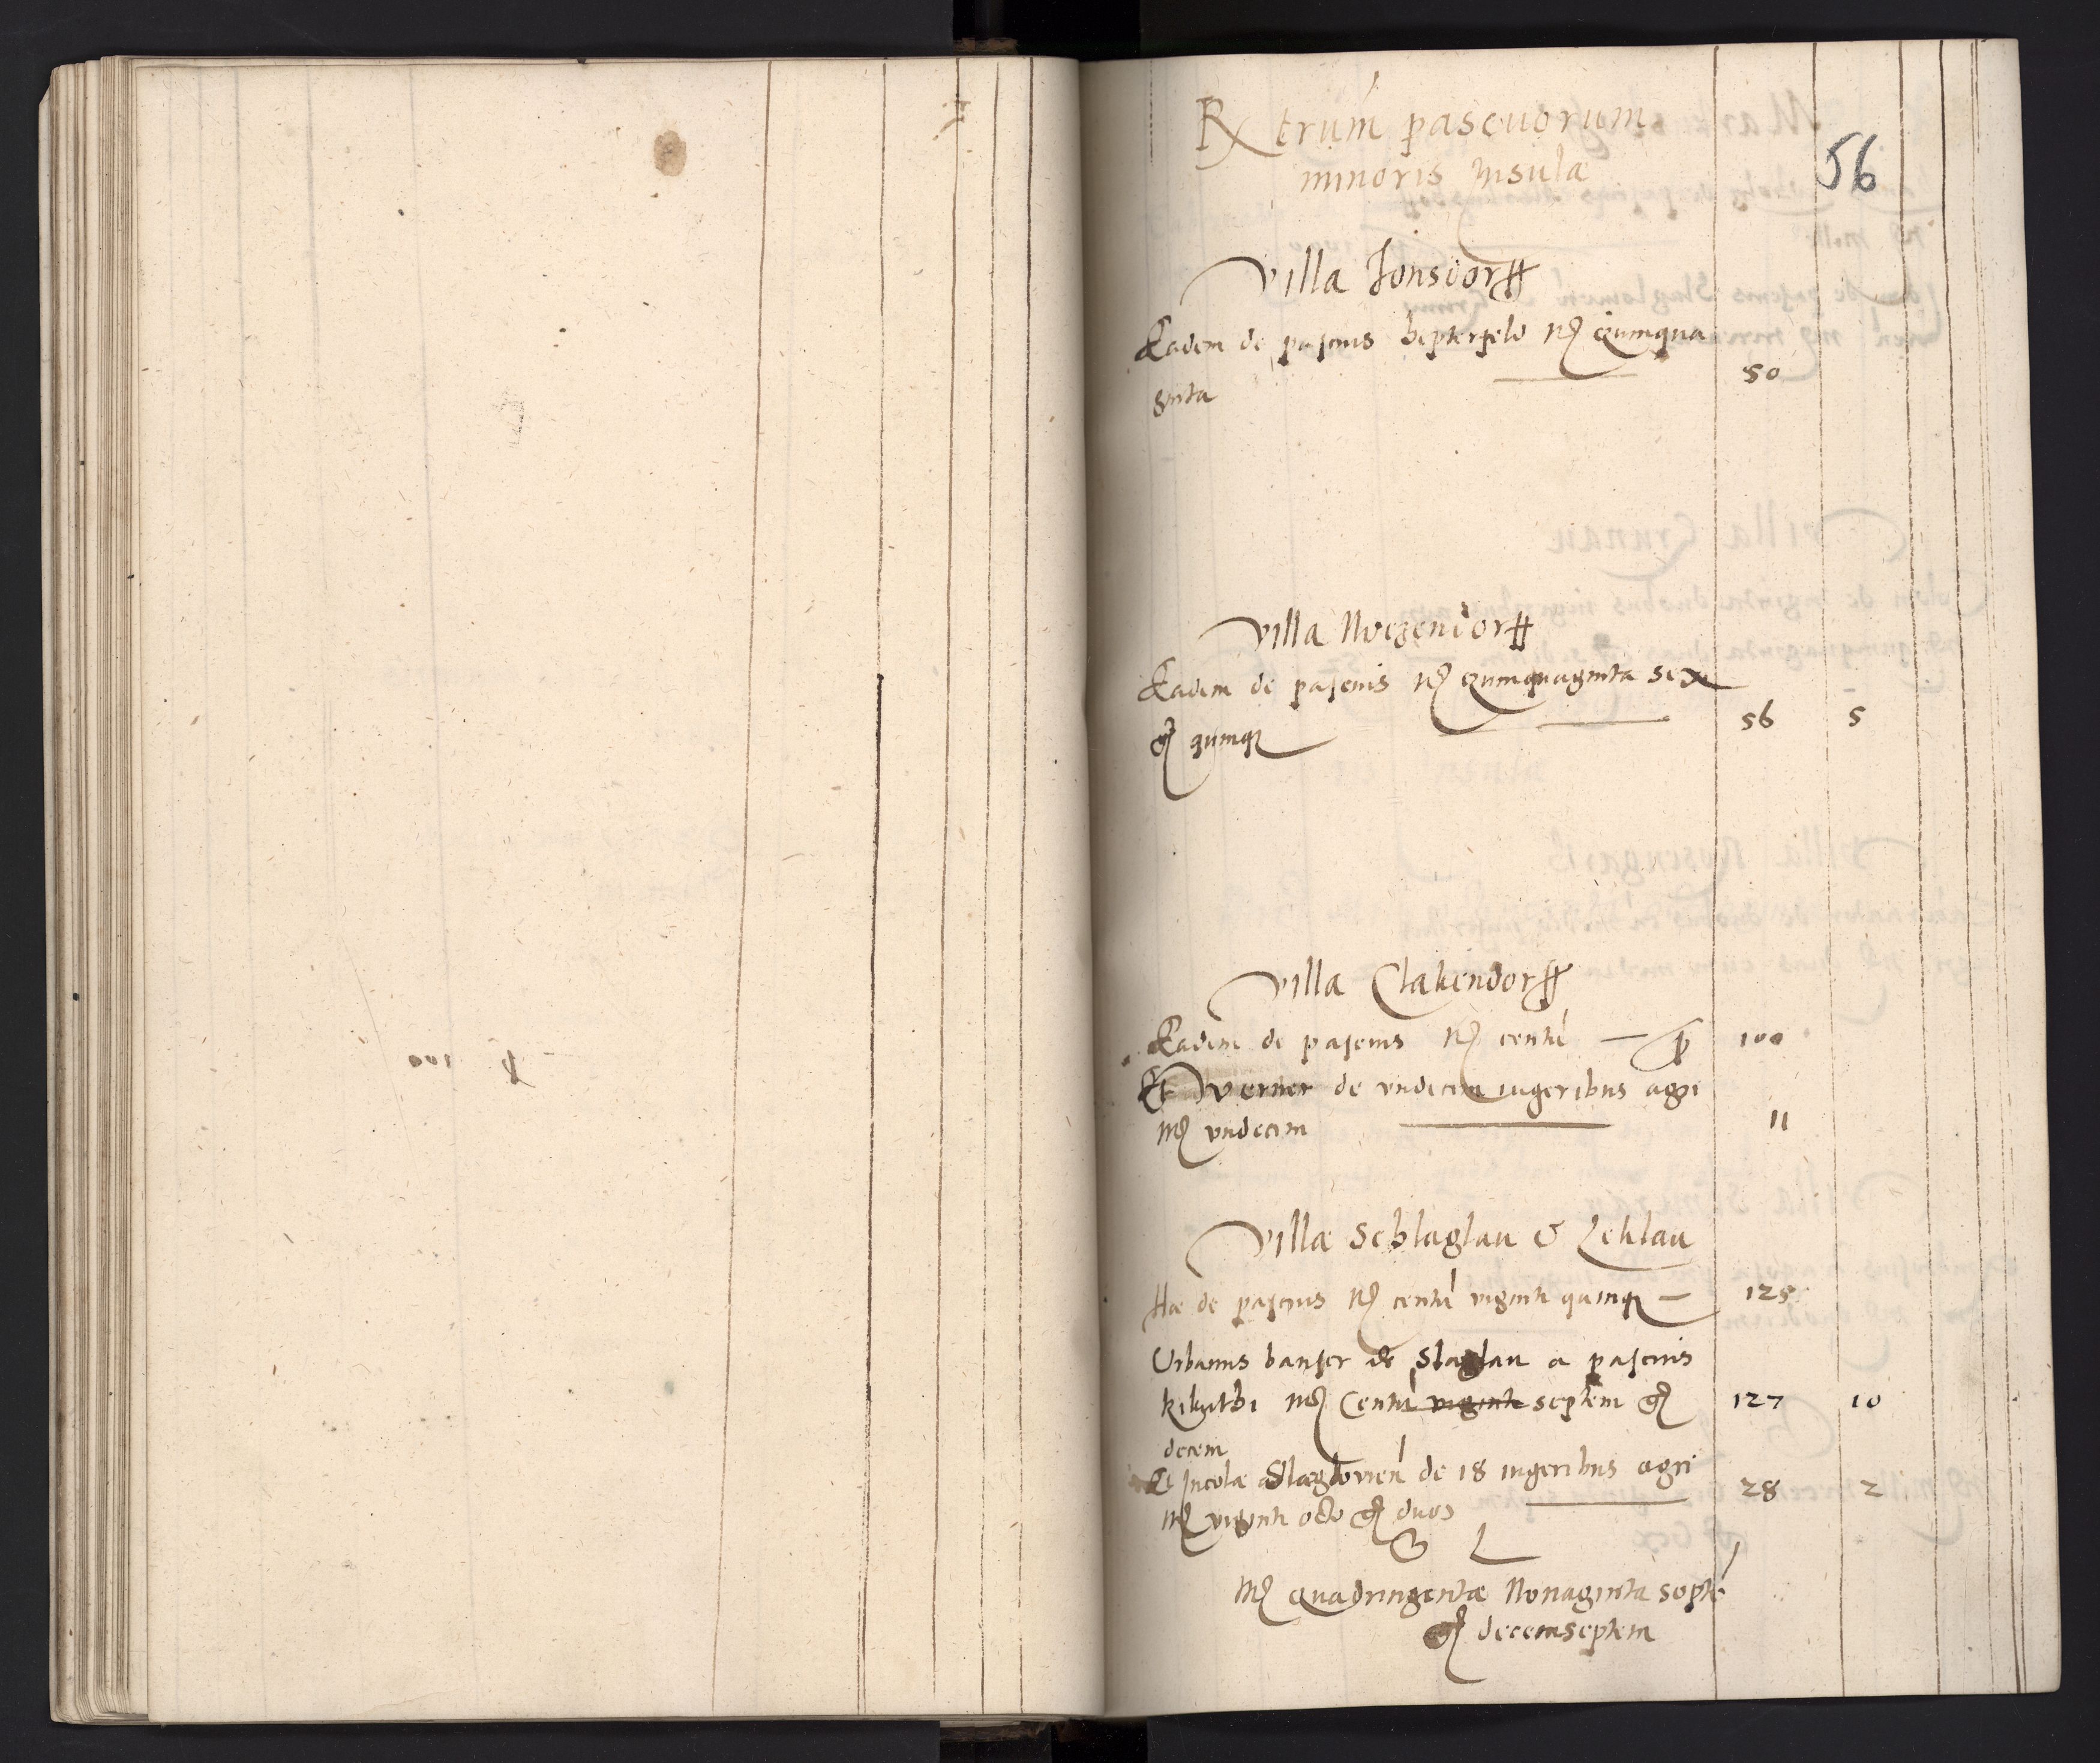 Rx trum pascuorum
minoris insula
56
Villa Jonsdorff
Eadem de pascuis hepterfeld mr Quinqua
ginta 50
Villa Notzendorff
Eadem de pascuis mr Quinquaginta sex
gr quinq 56 5
Villa Clakendorff
Eadem de pascuis mr centu — p 100
Et Werner de vndecem iugeribus agri
mr vndecim 11
Villae Schlaglau & Leklau
Hae de pascuis mr centu viginti quinq — 125
Urbanus banser de Slaglau a pascuis
mr Centu viginti septem gr 127 10
decem
Et Incolae Slaglovien de 18 iugeribus agri
mr viginti octo gr duos 28 2
S L
mr quadringentae Nonaginta septe
gr decemseptem